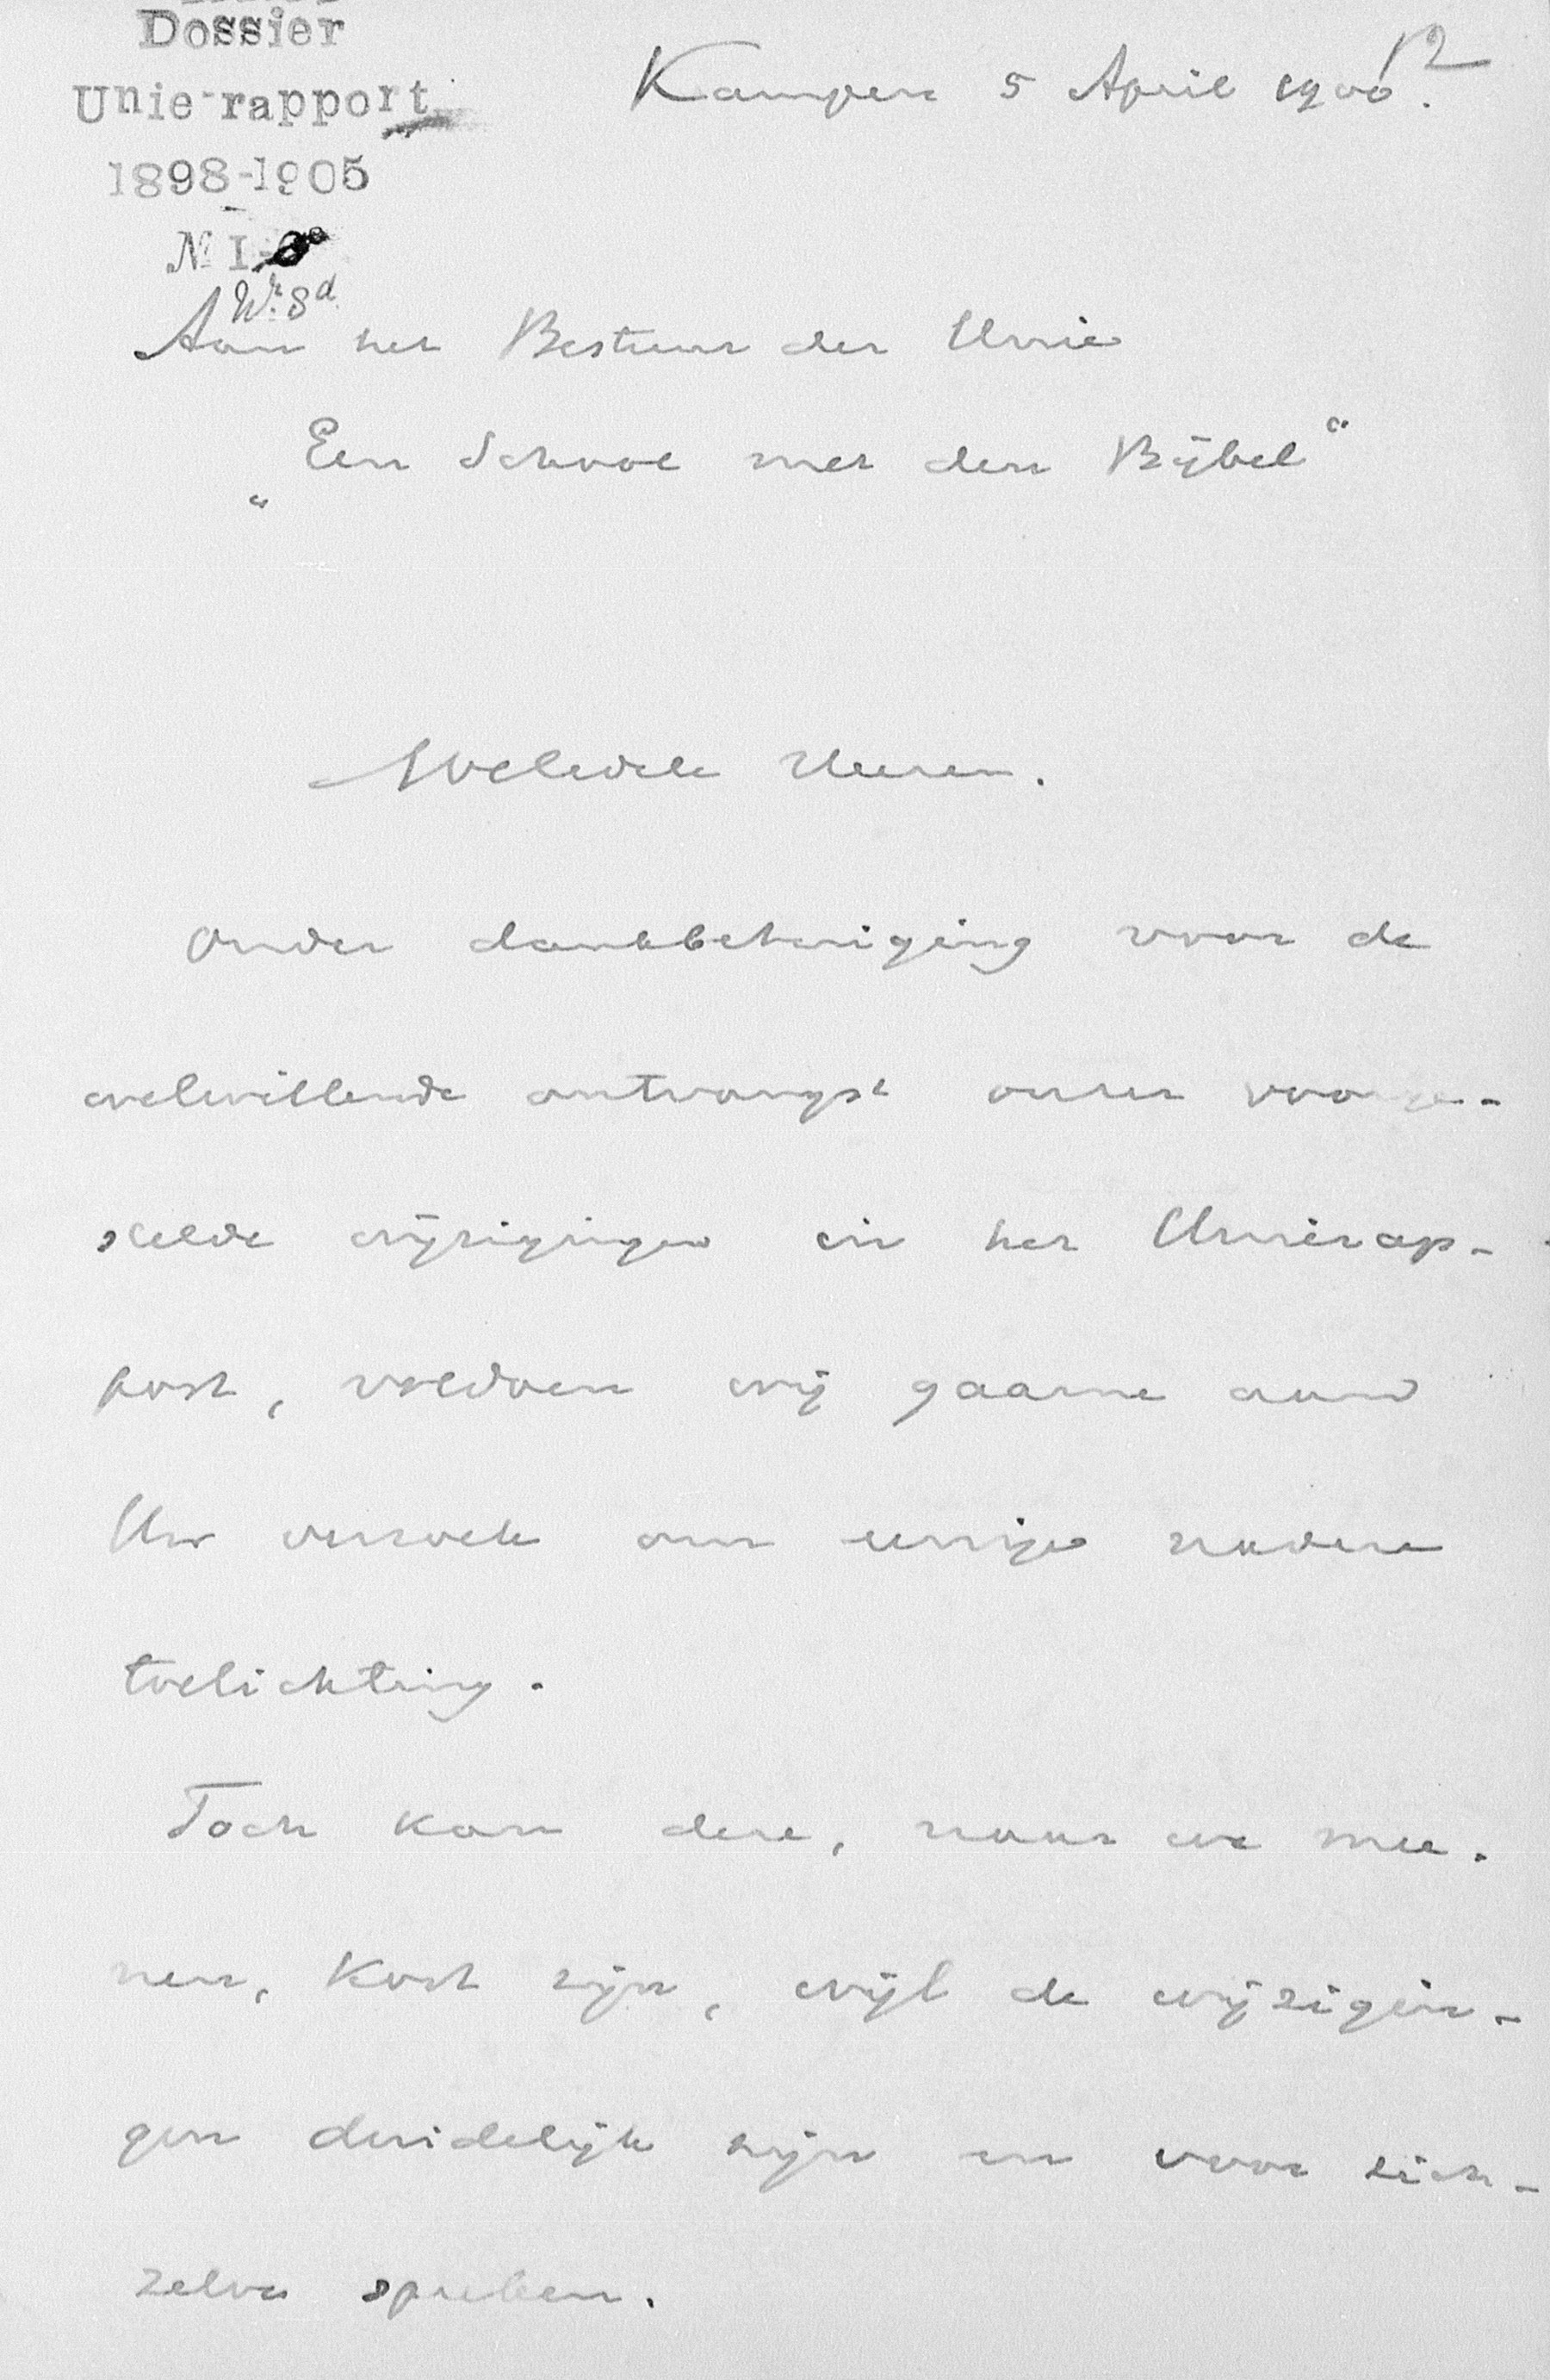 Dossier
Unie-rapport
1898-1905
№ I-
Wr. 8d
12
Kampen 5 April 1900.
Aan het Bestuur der Unie
„Een School met den Bijbel“
Weledele Heeren.
Onder dankbetuiging voor de
welwillende ontvangst onzer voorge-
stelde wijzigingen in het Unierap-
port, voldoen wij gaarne aan
Uw verzoek om eenige nadere
toelichting.
Toch kan deze, naar we mee-
nen, kort zijn, wijl de wijzigin-
gen duidelijk zijn en voor zich-
zelve spreken.